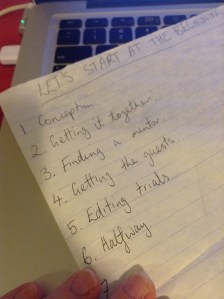 LET'S START AT THE BEGINNING
1. Conception
2. Getting it together...
3. Finding a mentor.
4. Getting the guests.
5. Editing trials.
6. Halfway
7